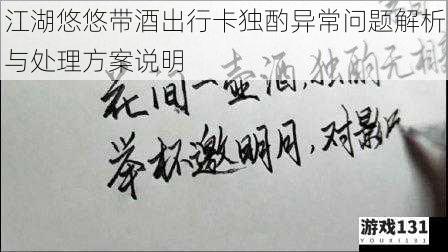 江湖悠悠带酒出行卡独酌异常问题解析
与处理方案说明
花间一壶酒,独酌无相
举杯邀明月,对影
游戏131
YOUXI131